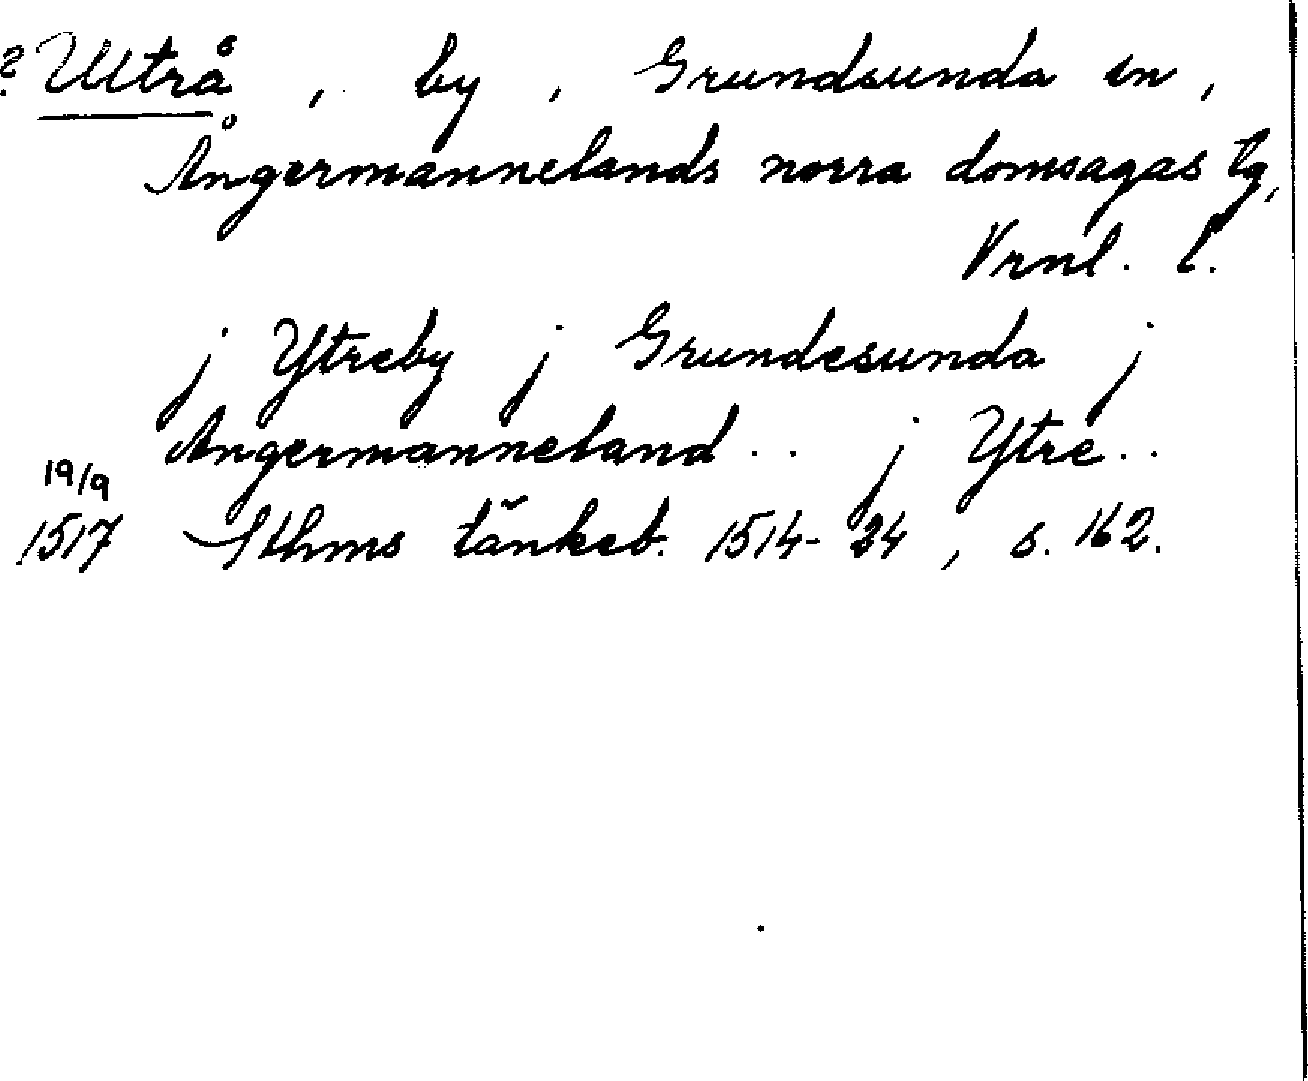 ? Ultrå , by , Grundsunda sn ,
Ångermannelands norra domsagas tg,
Vrnl. l.
j Ytreby j Grundesunda j
Angermanneland . . j Ytre . .
19/9
1517 Sthms tänkeb. 1514-24 , s. 162.